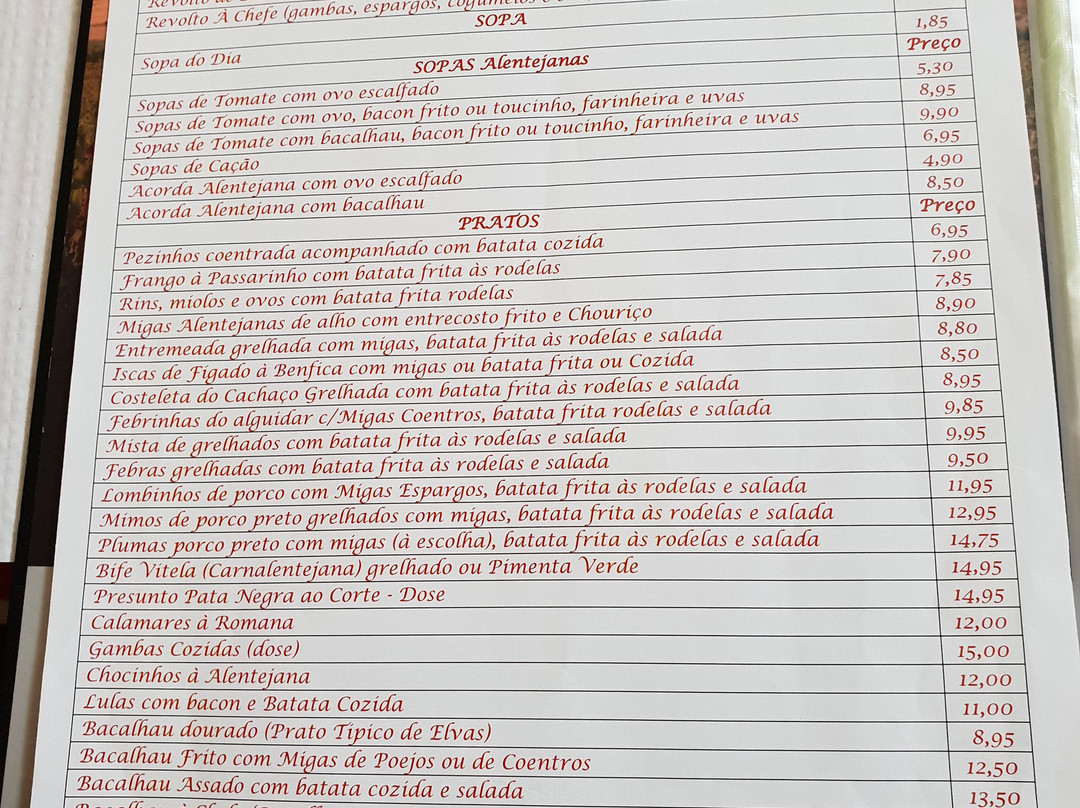 Revolto À Chefe (gambas, espargos, cogumelos
SOPA
Sopa do Dia 1,85
SOPAS Alentejanas Preço
Sopas de Tomate com ovo escalfado 5,30
Sopas de Tomate com ovo, bacon frito ou toucinho, farinheira e uvas 8,95
Sopas de Tomate com bacalhau, bacon frito ou toucinho, farinheira e uvas 9,90
Sopas de Cação 6,95
Acorda Alentejana com ovo escalfado 4,90
Acorda Alentejana com bacalhau 8,50
PRATOS Preço
Pezinhos coentrada acompanhado com batata cozida 6,95
Frango à Passarinho com batata frita às rodelas 7,90
Rins, miolos e ovos com batata frita rodelas 7,85
Migas Alentejanas de alho com entrecosto frito e Chouriço 8,90
Entremeada grelhada com migas, batata frita às rodelas e salada 8,80
Iscas de Figado à Benfica com migas ou batata frita ou Cozida 8,50
Costeleta do Cachaço Grelhada com batata frita às rodelas e salada 8,95
Febrinhas do alguidar c/Migas Coentros, batata frita rodelas e salada 9,85
Mista de grelhados com batata frita às rodelas e salada 9,95
Febras grelhadas com batata frita às rodelas e salada 9,50
Lombinhos de porco com Migas Espargos, batata frita às rodelas e salada 11,95
Mimos de porco preto grelhados com migas, batata frita às rodelas e salada 12,95
Plumas porco preto com migas (à escolha), batata frita às rodelas e salada 14,75
Bife Vitela (Carnalentejana) grelhado ou Pimenta Verde 14,95
Presunto Pata Negra ao Corte - Dose 14,95
Calamares à Romana 12,00
Gambas Cozidas (dose) 15,00
Chocinhos à Alentejana 12,00
Lulas com bacon e Batata Cozida 11,00
Bacalhau dourado (Prato Tipico de Elvas) 8,95
Bacalhau Frito com Migas de Poejos ou de Coentros 12,50
Bacalhau Assado com batata cozida e salada 13,50